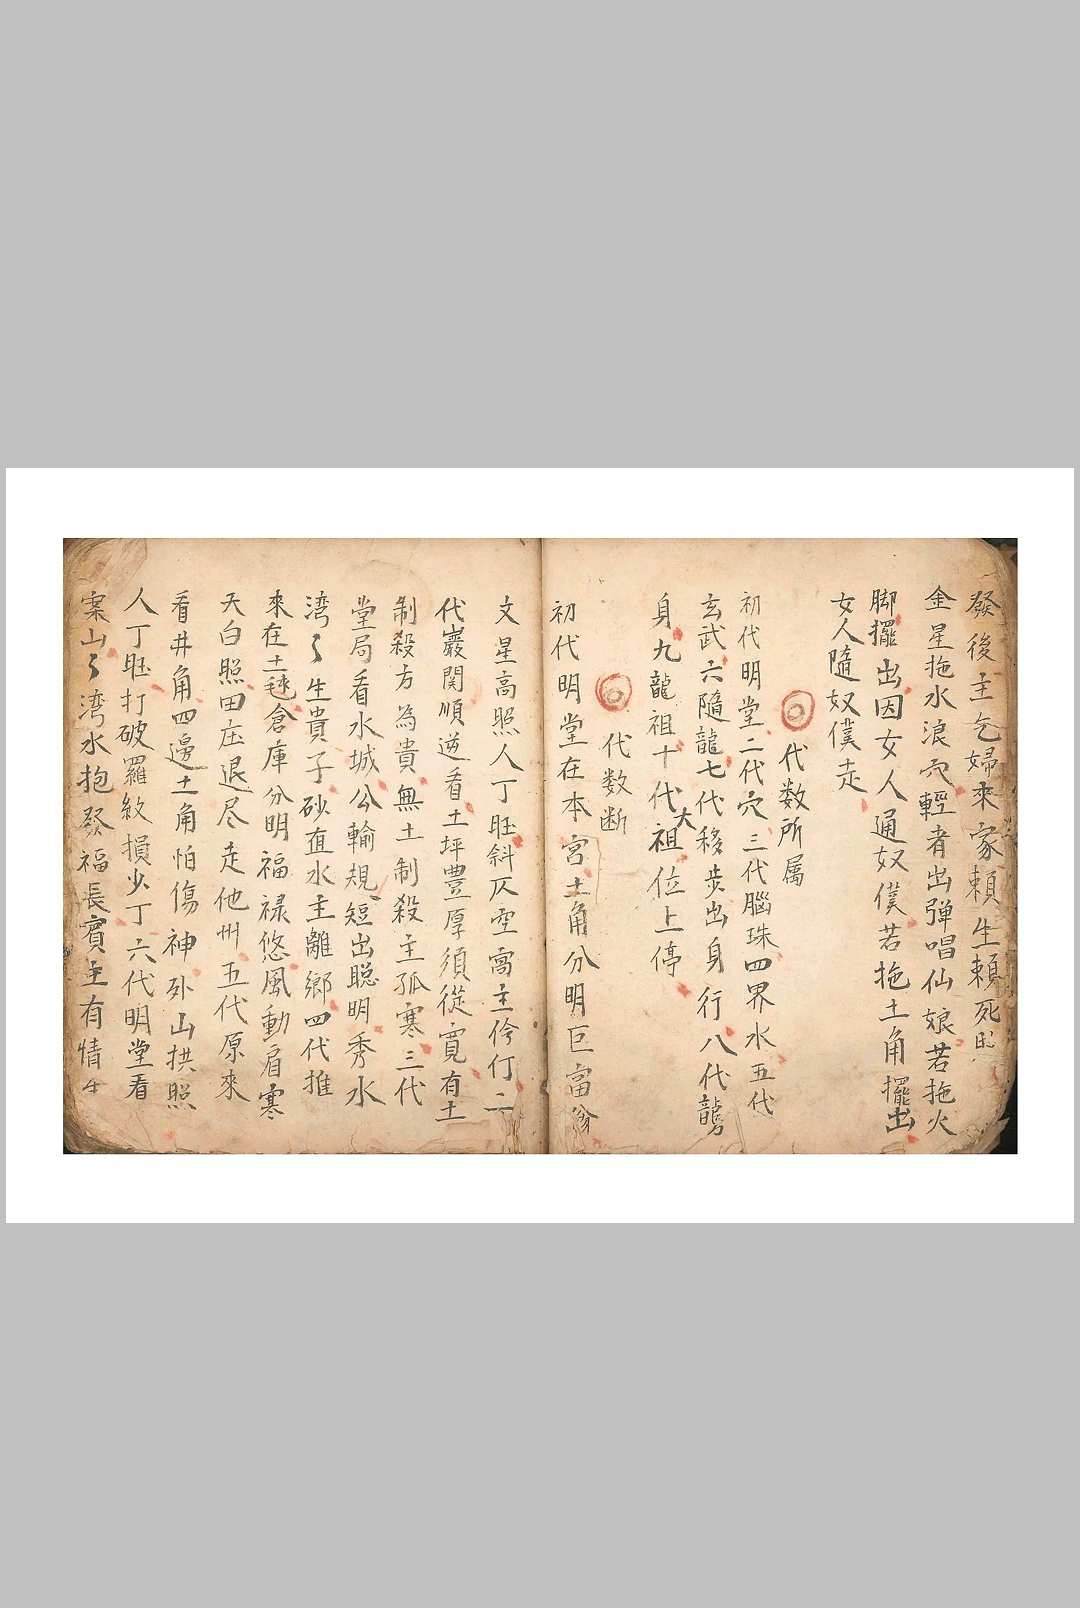 發後主乞婦來家賴生賴死
金星拖水浪穴輕者出弹唱仙娘若拖火
脚擺出因女人通奴僕若拖土角擺出
女人隨奴僕走
代数所属
初代明堂二代穴三代腦珠四界水五代
玄武六隨龍七代移步出身行八代龍
身九龍祖十代大祖位上停
代数断
初代明堂在本宫土角分明巨富翁
文星高照人丁旺斜仄空窩主伶仃二
代嚴関順逆看土坪豊厚須從寛有土
制殺方為貴無土制殺主孤寒三代
堂局看水城公輸規短出聪明秀水
湾〻生貴子砂直水主離鄉四代推
來在土倉庫分明福禄悠風動肩寒
天白照田庄退尽走他州五代原來
看井角四邊土角怕傷神外山拱照
人丁旺打破羅紋損少丁六代明堂看
案山〻湾水抱發福長賓主有情